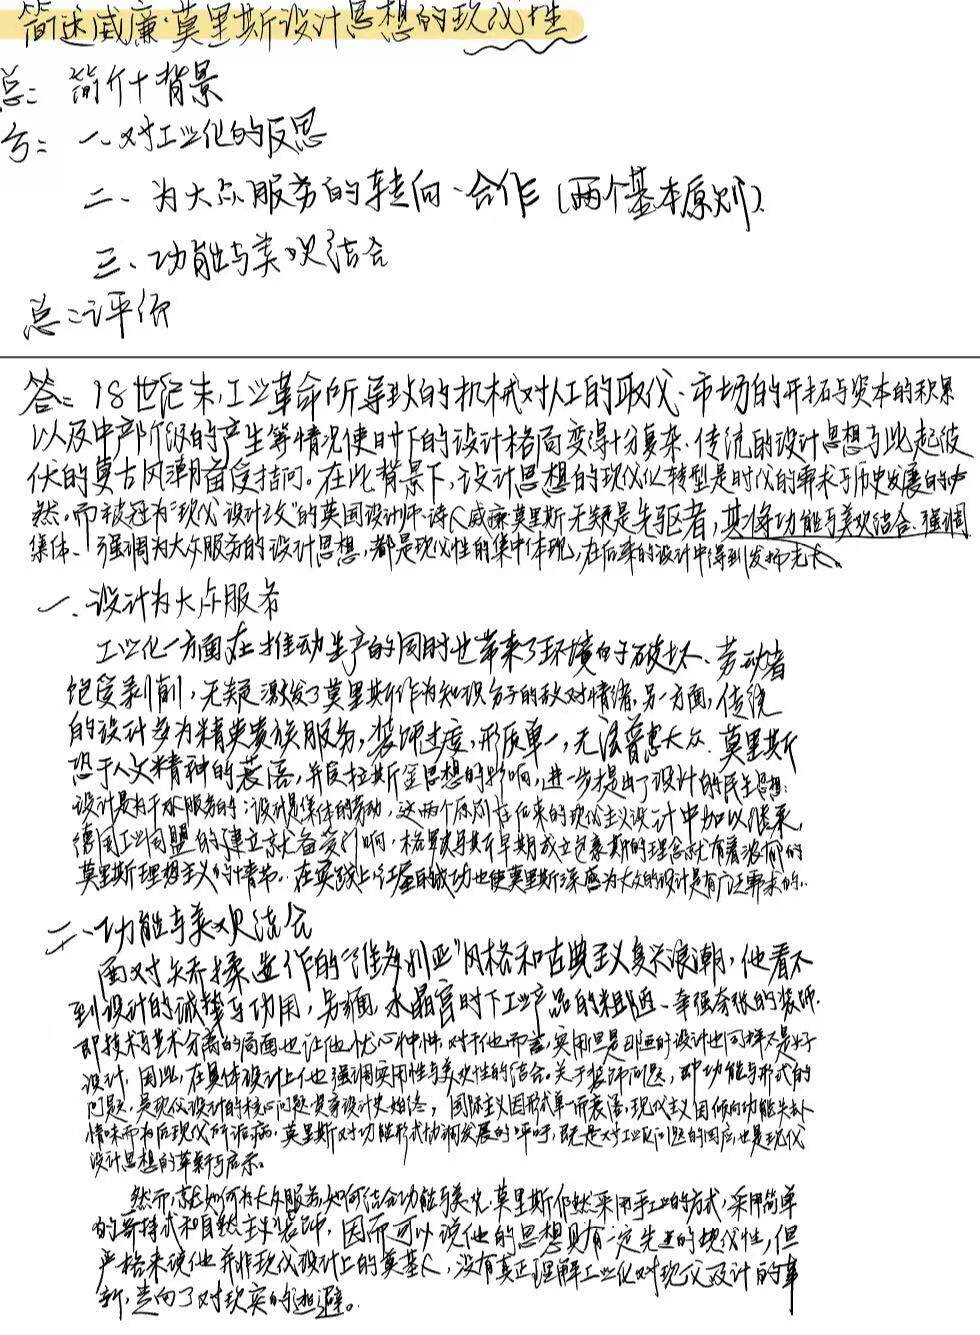 简述威廉·莫里斯设计思想的现代性
总: 简介+背景
分: 一、对工业化的反思
二、为大众服务的转向、合作(两个基本原则)
三、功能与美观结合
总: 评价
答: 18世纪末,工业革命所导致的机械对人工的取代、市场的开拓与资本的积累
以及中产阶级的产生等情况使时下的设计格局变得十分复杂,传统的设计思想与此起彼
伏的复古风潮首度桔问。在此背景下,设计思想的现代化转型是时代的需求与历史发展的必
然。而被冠为“现代设计之父”的英国设计师、诗人威廉莫里斯无疑是先驱者,其将功能与美观结合、强调
集体、强调为大众服务的设计思想,都是现代性的集中体现,在后来的设计中得到发扬光大。
一、设计为大众服务
工业化一方面在推动生产的同时也带来了环境的破坏、劳动者
饱受剥削,无疑激发了莫里斯作为知识分子的敌对情绪,另一方面,传统
的设计多为精英贵族服务,装饰过度,形质单一,无法普惠大众。莫里斯
恐于人文精神的衰落,并受拉斯金思想的影响,进一步提出了设计的民主思想:
设计是为千万人服务的;设计是集体的劳动,这两个原则在后来的现代主义设计中加以继承,
德国工业同盟的建立就备受影响,格罗皮乌斯早期成立包豪斯的理念就有着浓郁的
莫里斯理想主义的情节。在实践上,红屋的成功也使莫里斯深感为大众的设计是有广泛需求的。
二、功能与美观结合
面对矫揉造作的“维多利亚”风格和古典主义复兴浪潮,他看不
到设计的诚挚与功用,另一方面,水晶宫时下工业产品的粗陋、牵强夸张的装饰
即技术与艺术分离的局面也让他忧心忡忡。对于他而言,实用但是丑陋的设计也同样不是好
设计,因此,在具体设计上他强调实用性与美观性的结合。关于装饰问题,即功能与形式的
问题,是现代设计的核心问题贯穿设计史始终,国际主义因形式单一而衰落,现代主义因倾向功能失缺
情味而为后现代所诟病,莫里斯对功能形式协调发展的呼吁,既是对工业及问题的回应也是现代
设计思想的革新与启示。
然而,就如何为大众服务,如何结合功能与美观,莫里斯仍然采用手工业的方式,采用简单
的哥特式和自然主义装饰,因而可以说他的思想具有一定先进的现代性,但
严格来说他并非现代设计上的奠基人,没有真正理解工业化对现代设计的革
新,走向了对现实的逃避。